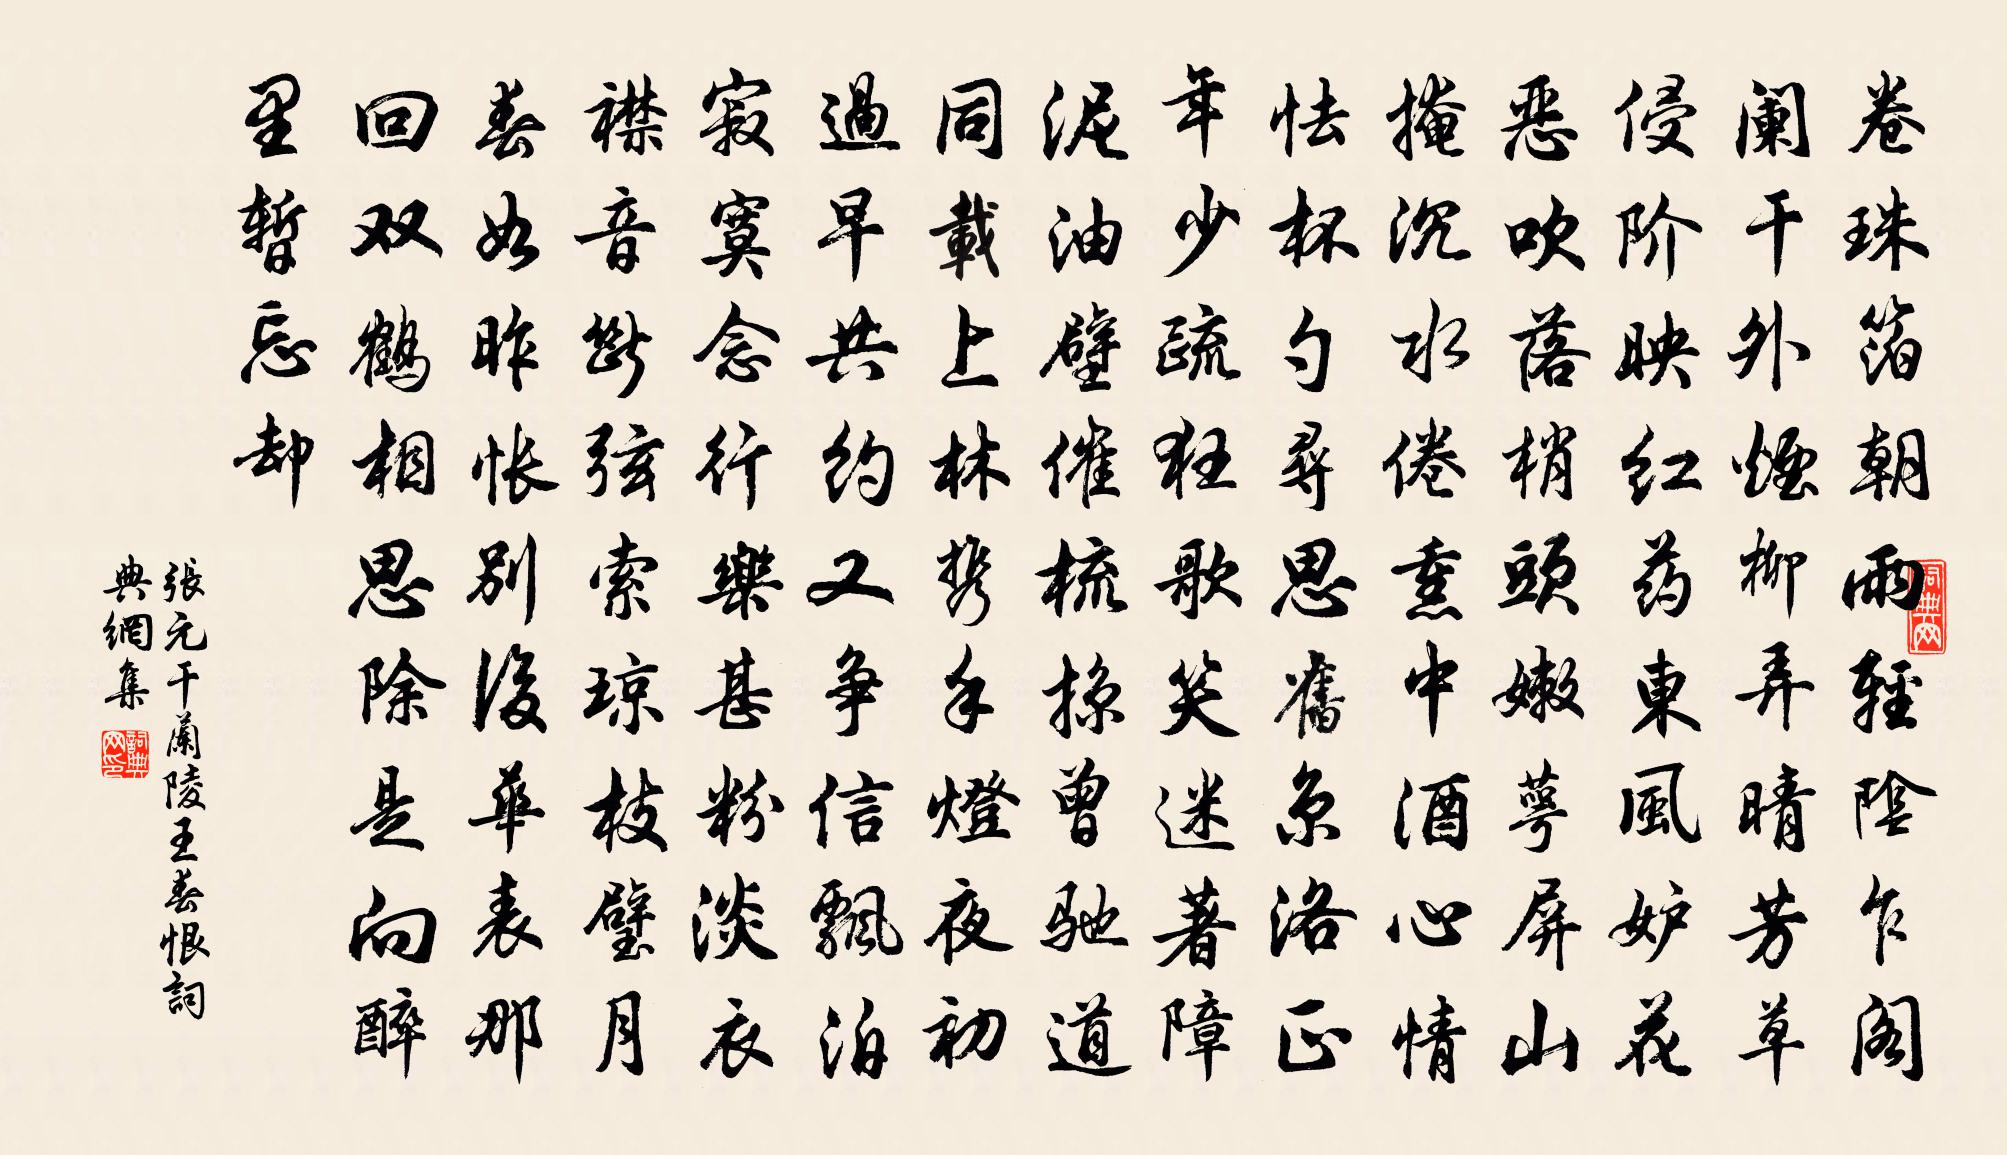 卷珠箔朝雨輕陰乍阁
阑干外煙柳弄晴芳草
侵阶映红药東風妒花
恶吹落梢頭嫩萼屏山
掩沉水倦熏中酒心情
怯杯勺尋思舊京洛正
年少疏狂歌笑迷著障
泥油壁催梳掠曾驰道
同載上林携手燈夜初
過早共約又爭信飄泊
寂寞念行樂甚粉淡衣
襟音斷弦索琼枝璧月
春如昨怅別後華表那
回双鶴相思除是向醉
里暫忘却
張元干蘭陵王春恨詞
典網集
词典网
詞典网印